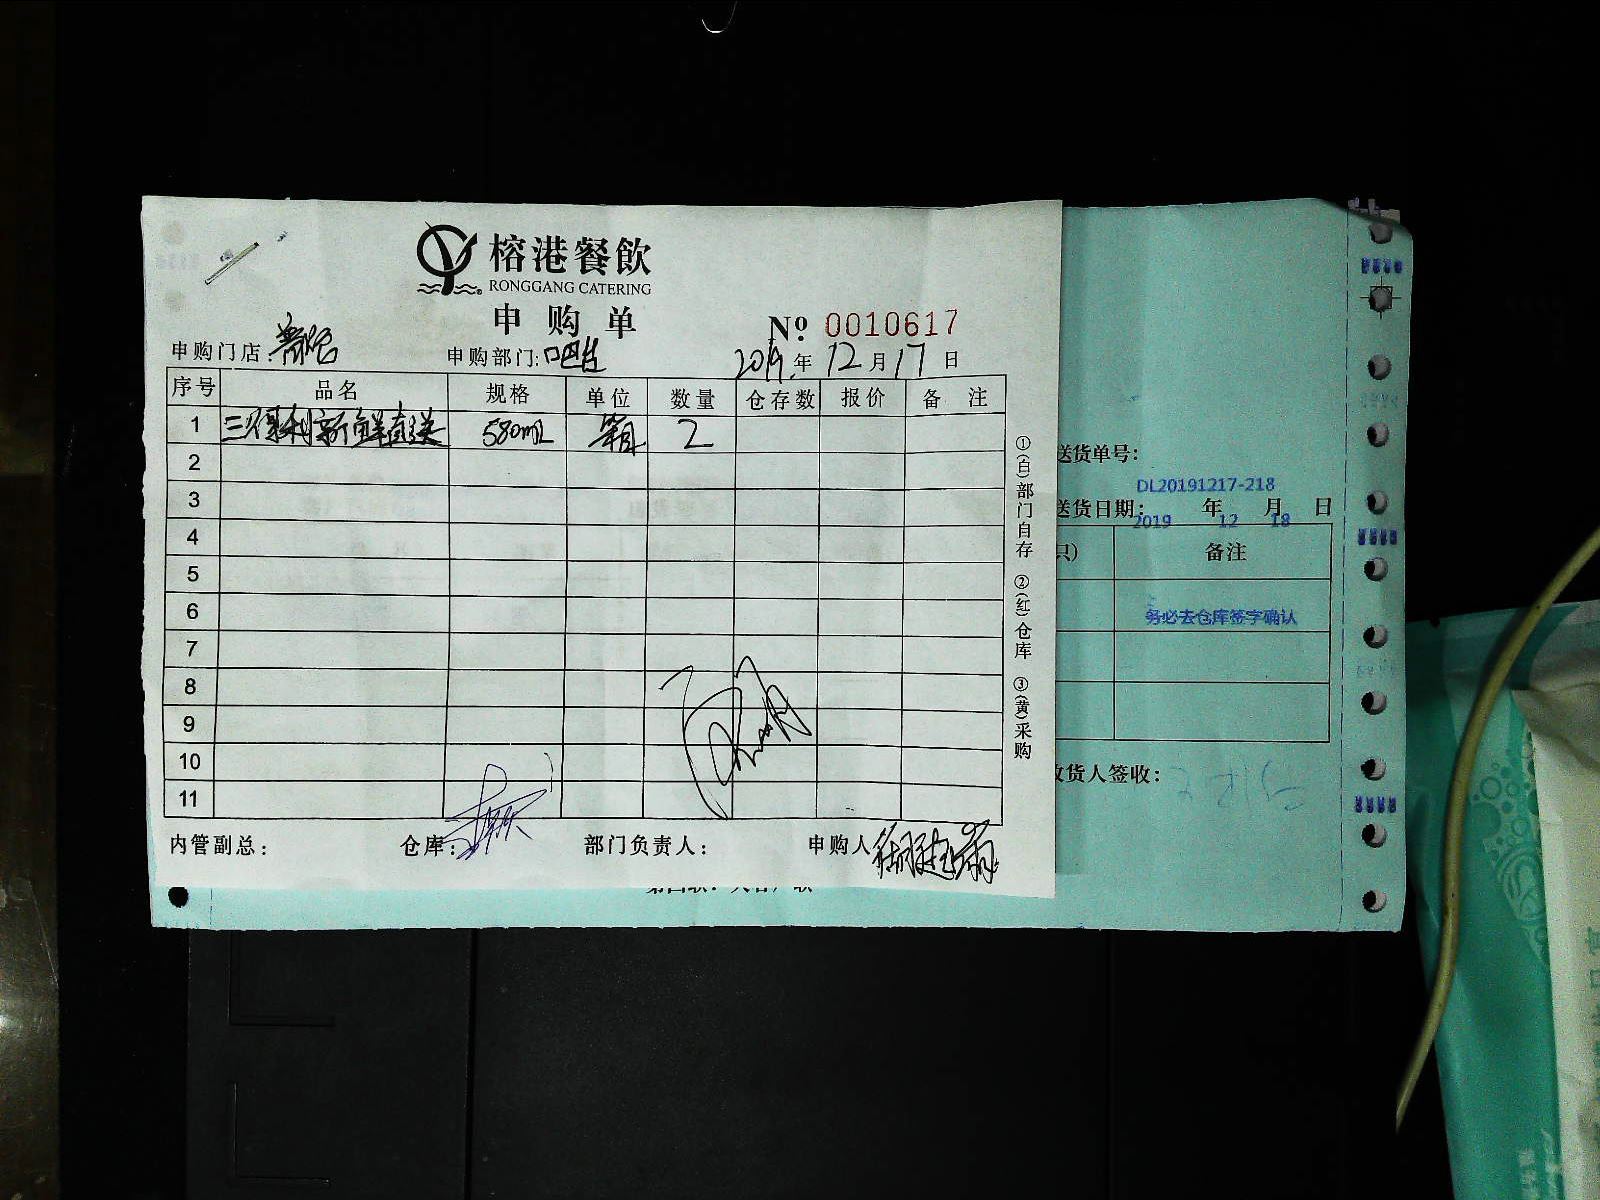 榕港餐飲
RONGGANG CATERING
申购单
№ 0010617
申购门店:
申购部门:吧台
2019年12月17日
序号 品名 规格 单位 数量 仓存数 报价 备注
1 三得利新鲜直送 580mL 箱 2
2
3
4
5
6
7
8
9
10
11
内管副总:
仓库:
部门负责人:
申购人
①(白)部门自存 ②(红)仓库 ③(黄)采购
送货单号:
DL20191217-218
送货日期: 年 月 日
2019 12 18
只) 备注
务必去仓库签字确认
收货人签收: